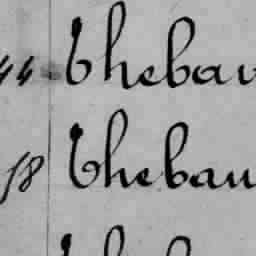 44 Thebau
58 Thebau